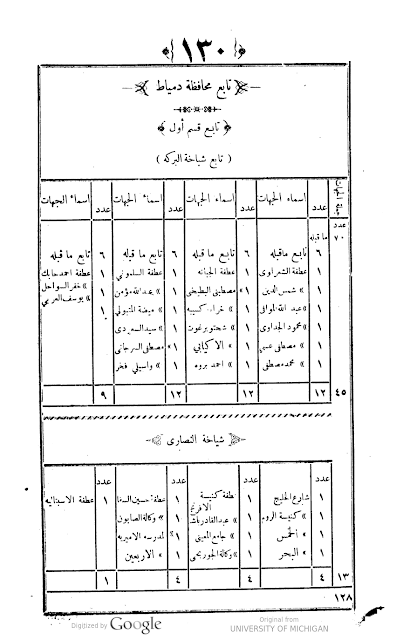 ﴿ ١٣٠ ﴾
﴿ تابع محافظة دمياط ﴾
﴿ تابع قسم أول ﴾
( تابع شياخة البركه )
عدد اسماء الجهات عدد اسماء الجهات عدد اسماء الجهات عدد اسماء الجهات
عدد
٧٠ ما قبله
٦ تابع ماقبله ٦ تابع ما قبله ٦ تابع ما قبله ٦ تابع ما قبله
١ عطفة الشعراوى ١ عطفة الجبانه ١ عطفة ١ عطفة احمد
١ » شمس الدين ١ » مصطفى البطيخى ١ » عبدالله مؤمن ١
١ » عبد الله الوافى ١ ١ » ميضة المتبولى ١ » يوسف العربى
١ » محمود الجداوى ١ » شحتوبرغوت ١ ١
١ » مصطفى عيسى ١ » الاكيابى ١ » مصطفى
١ » محمد مصطفى ١ » احمد بروه ١
٤٥ ١٢ ١٢ ١٢ ٩
﴿ شياخة النصارى ﴾
عدد عدد عدد عدد
١ شارع الخليج ١ عطفة كنيسة الافرنج ١ عطفة حسين ١ عطفة
١ » كنيسة الروم ١ » عبدالقادر باشا ١ » وكالة الصابون
١ » الخمس ١ » جامع المعينى ١ » المدرسه الاميريه
١ » البحر ١ » وكالة ١ » الاربعين
١٣ ٤ ٤ ٤ ١
١٢٨
Digitized by Google
Original from
UNIVERSITY OF MICHIGAN